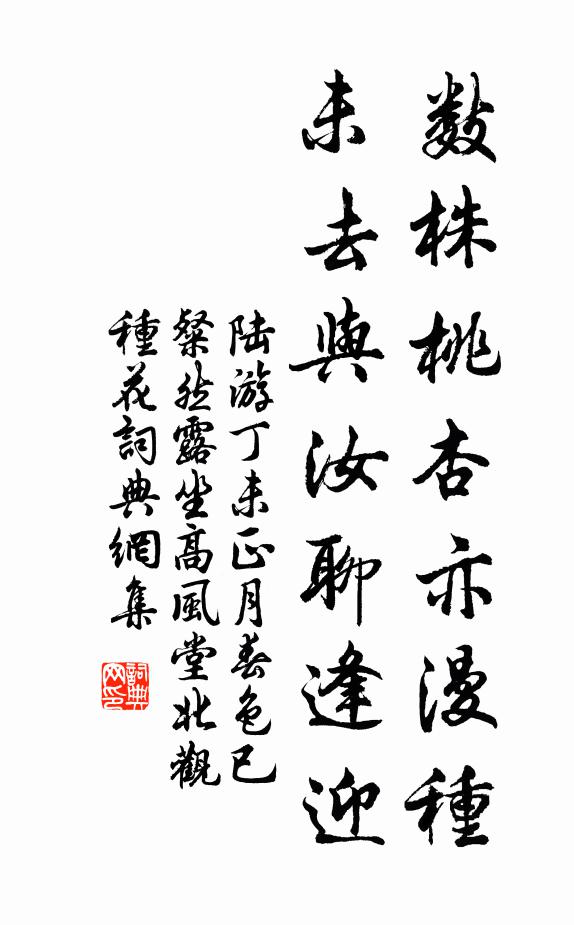 數株桃杏亦漫種
未去與汝聊逢迎
陆游丁未正月春色已
粲然露坐高風堂北觀
種花詞典網集
詞典
网印